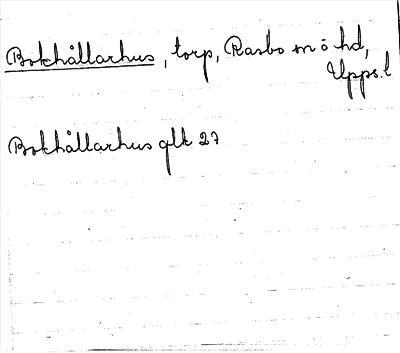 Bokhållarhus, torp, Rasbo sn ö hd,
Upps. l
Bokhållarhus glk 27